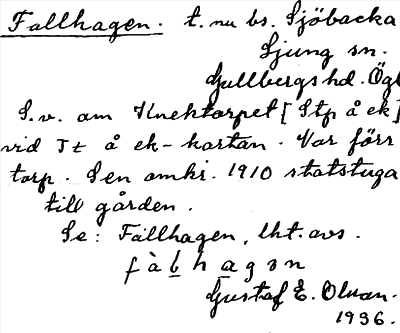 Fallhagen. t. nu bs. Sjöbacka
Ljung sn.
Gullbergs hd. Ögl
S.v. om Knektorpet [Stp å ek]
vid Jt å ek-kartan. Var förr
torp. Sen omkr. 1910 statstuga
till gården.
Se: Fällhagen, lht. avs.
fàḇhagsn
Gustaf E. Olsson.
1936.